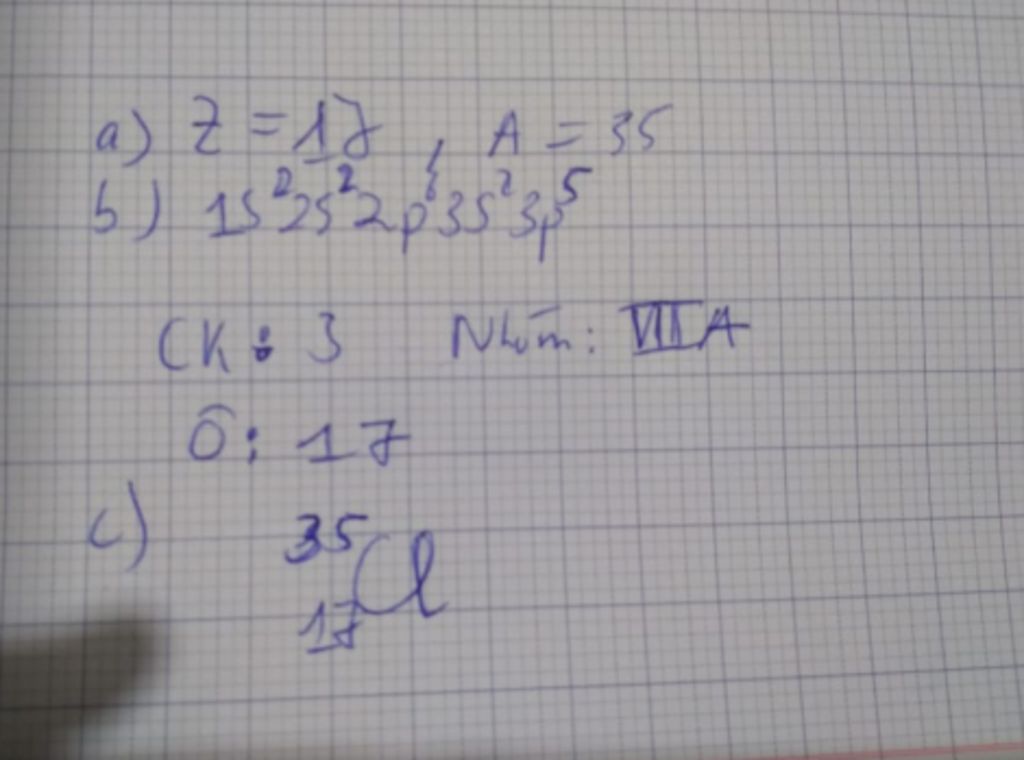 a) Z = 17, A = 35
b) 1s²2s²2p⁶3s²3p⁵
CK: 3 Nhóm: VIIA
Ô: 17
c) ³⁵₁₇Cl